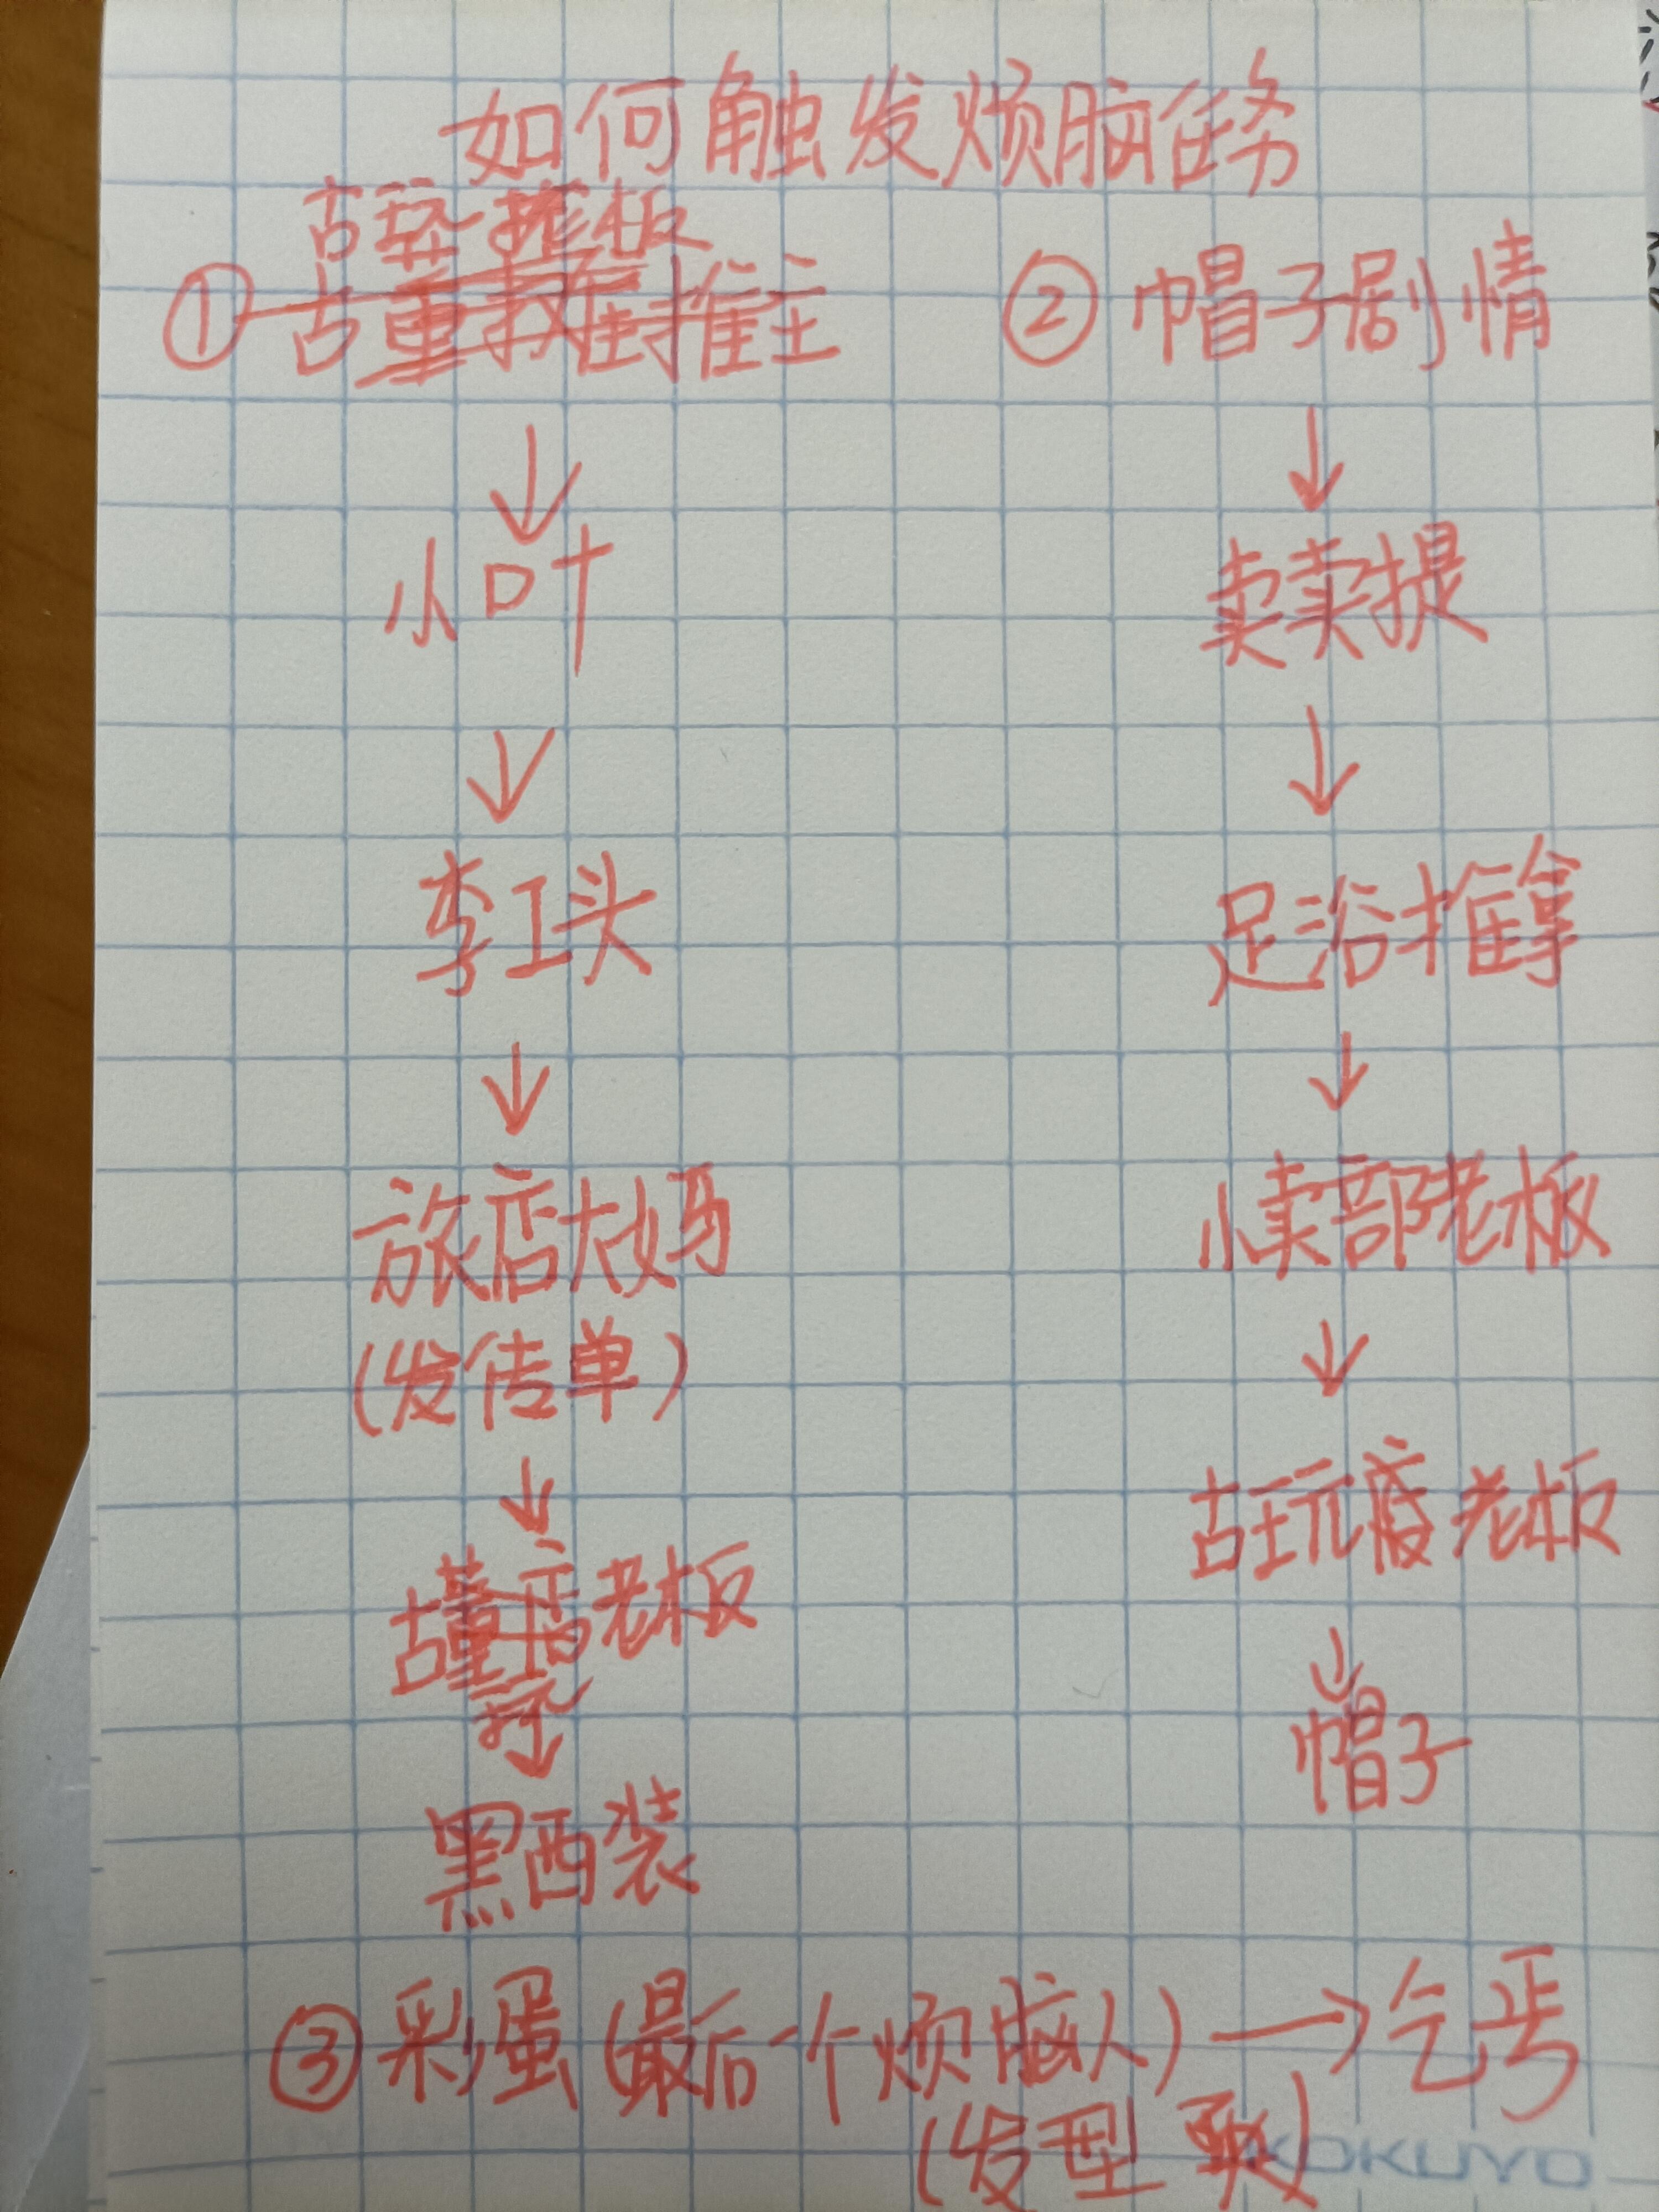 如何触发烦脑任务
古玩 老板
① 推主
② 帽子剧情
小叶
李工头
旅店大妈
(发传单)
古董店老板
黑西装
卖卖提
足浴推拿
小卖部老板
古玩店老板
帽子
③彩蛋(最后一个烦脑人)→乞丐
(发型)
KOKUYO